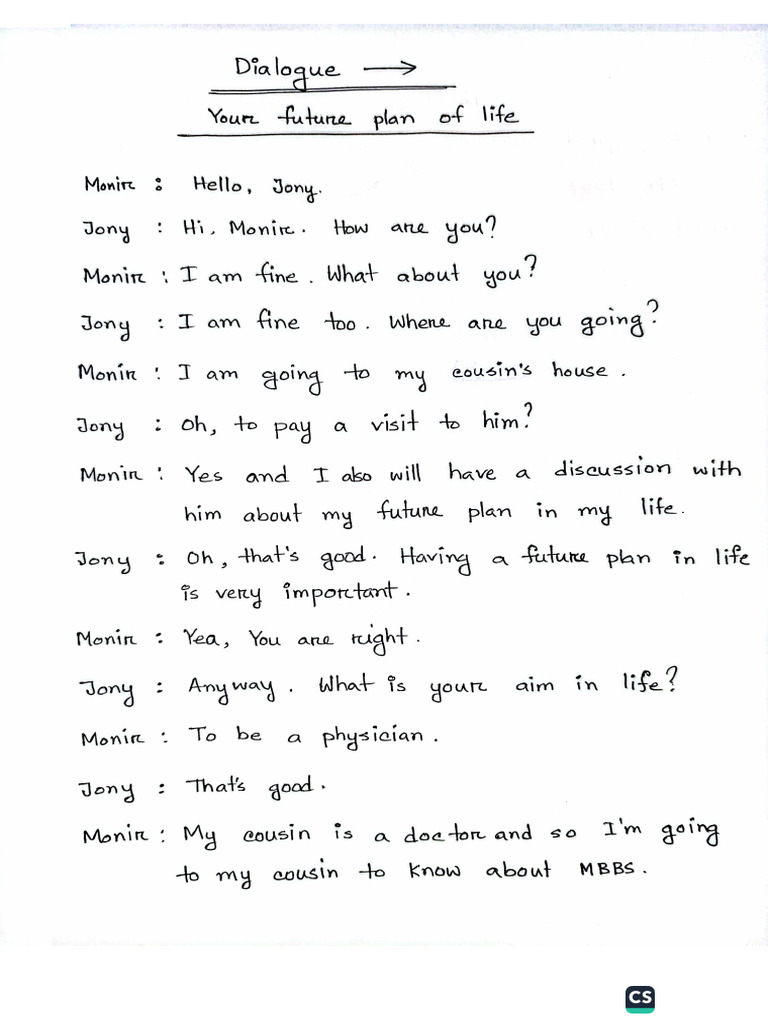 Dialogue →
Your future plan of life
Monir : Hello, Jony.
Jony : Hi, Monir. How are you?
Monir : I am fine. What about you?
Jony : I am fine too. Where are you going?
Monir : I am going to my cousin's house.
Jony : Oh, to pay a visit to him?
Monir : Yes and I also will have a discussion with
him about my future plan in my life.
Jony : Oh, that's good. Having a future plan in life
is very important.
Monir : Yea, You are right.
Jony : Anyway. What is your aim in life?
Monir : To be a physician.
Jony : That's good.
Monir : My cousin is a doctor and so I'm going
to my cousin to know about MBBS.
CS